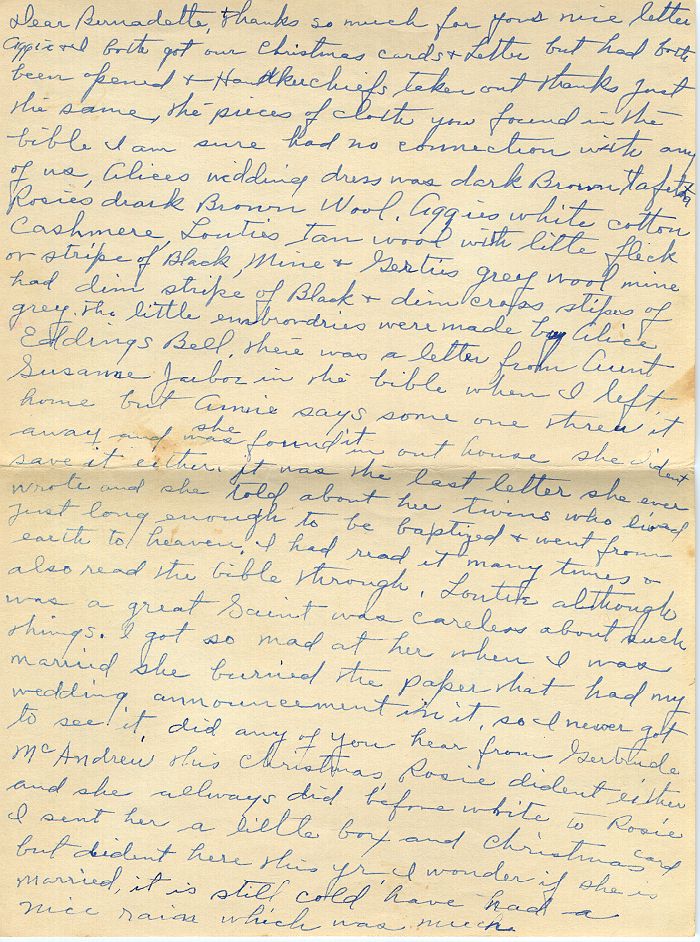 Dear Bernadette, thanks so much for your nice letter
Aggie & I both got our Christmas cards & Letter but had both
been opened & Handkerchiefs taken out thanks just
the same, the pieces of cloth you found in the
bible I am sure had no connection with any
of us, Alices wedding dress was dark Brown tafeta
Rosies drark Brown Wool. Aggies white cotton
Cashmere, Louties tan wool with litle fleck
or stripe of Black, Mine & Gerties grey wool mine
had dim stripe of Black & dim cross stipes of
grey. The little embrowdries were made by Alice
Eddings Bell, there was a letter from Aunt
Susanne Jarboe in the bible when I left
home but Annie says some one threw it
away and she was found it in out house she dident
save it either. it was the last letter she ever
wrote and she told about her twins who lived
just long enough to be baptized & went from
earth to heaven, I had read it many times &
also read the bible through, Loutie although
was a great Saint was careless about such
things. I got so mad at her when I was
married she burned the paper that had my
wedding announcement in it, so I never got
to see it, did any of you hear from Gertrude
McAndrew this Christmas, Rosie dident either
and she allways did before white to Rosie
I sent her a little box and Christmas card
but dident here this yr I wonder if she is
married, it is still cold have had a
nice rain which was much